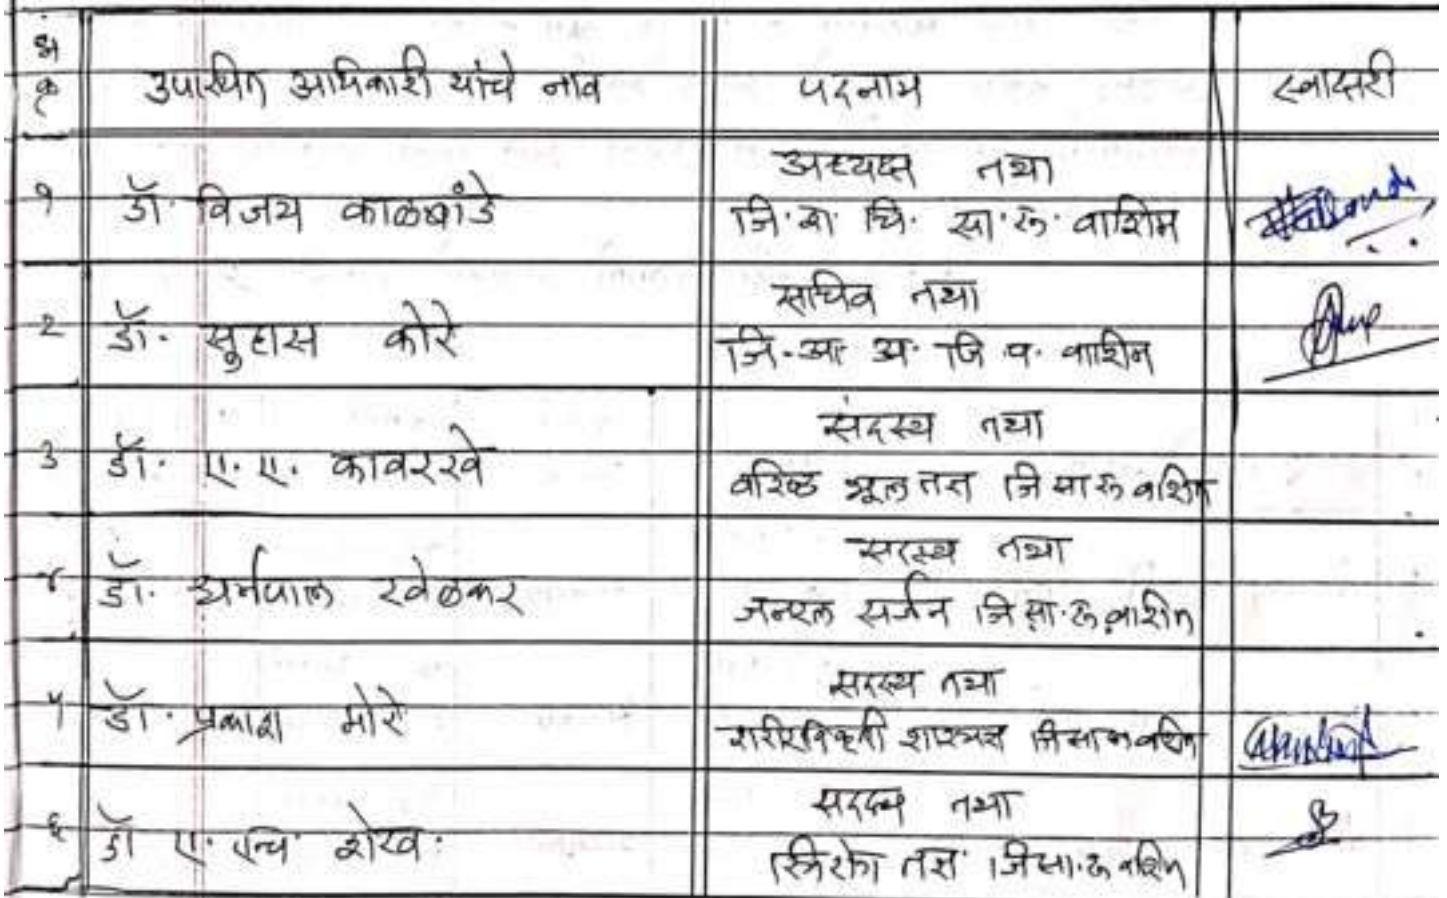 अ क्र उपस्थित अधिकारी यांचे नाव पदनाम स्वाक्षरी
१ डॉ. विजय काळबांडे अध्यक्ष तथा
जि. श. चि. सा. रु. वाशिम
२ डॉ. सुहास कोरे सचिव तथा
जि. आ. अ. जि. प. वाशिम
३ डॉ. ए. ए. कावरखे सदस्य तथा
वरिष्ठ भूल तज्ञ जि सा रु वाशिम
४ डॉ. धर्मपाल खेळकर सदस्य तथा
जनरल सर्जन जि. सा. रु. वाशिम
५ डॉ. प्रकाश मोरे सदस्य तथा
शरीरविकृती शास्त्रज्ञ जि सा रु वाशिम
६ डॉ ए. एच शेख. सदस्य तथा
स्त्रिरोग तज्ञ जि सा. रु वाशिम